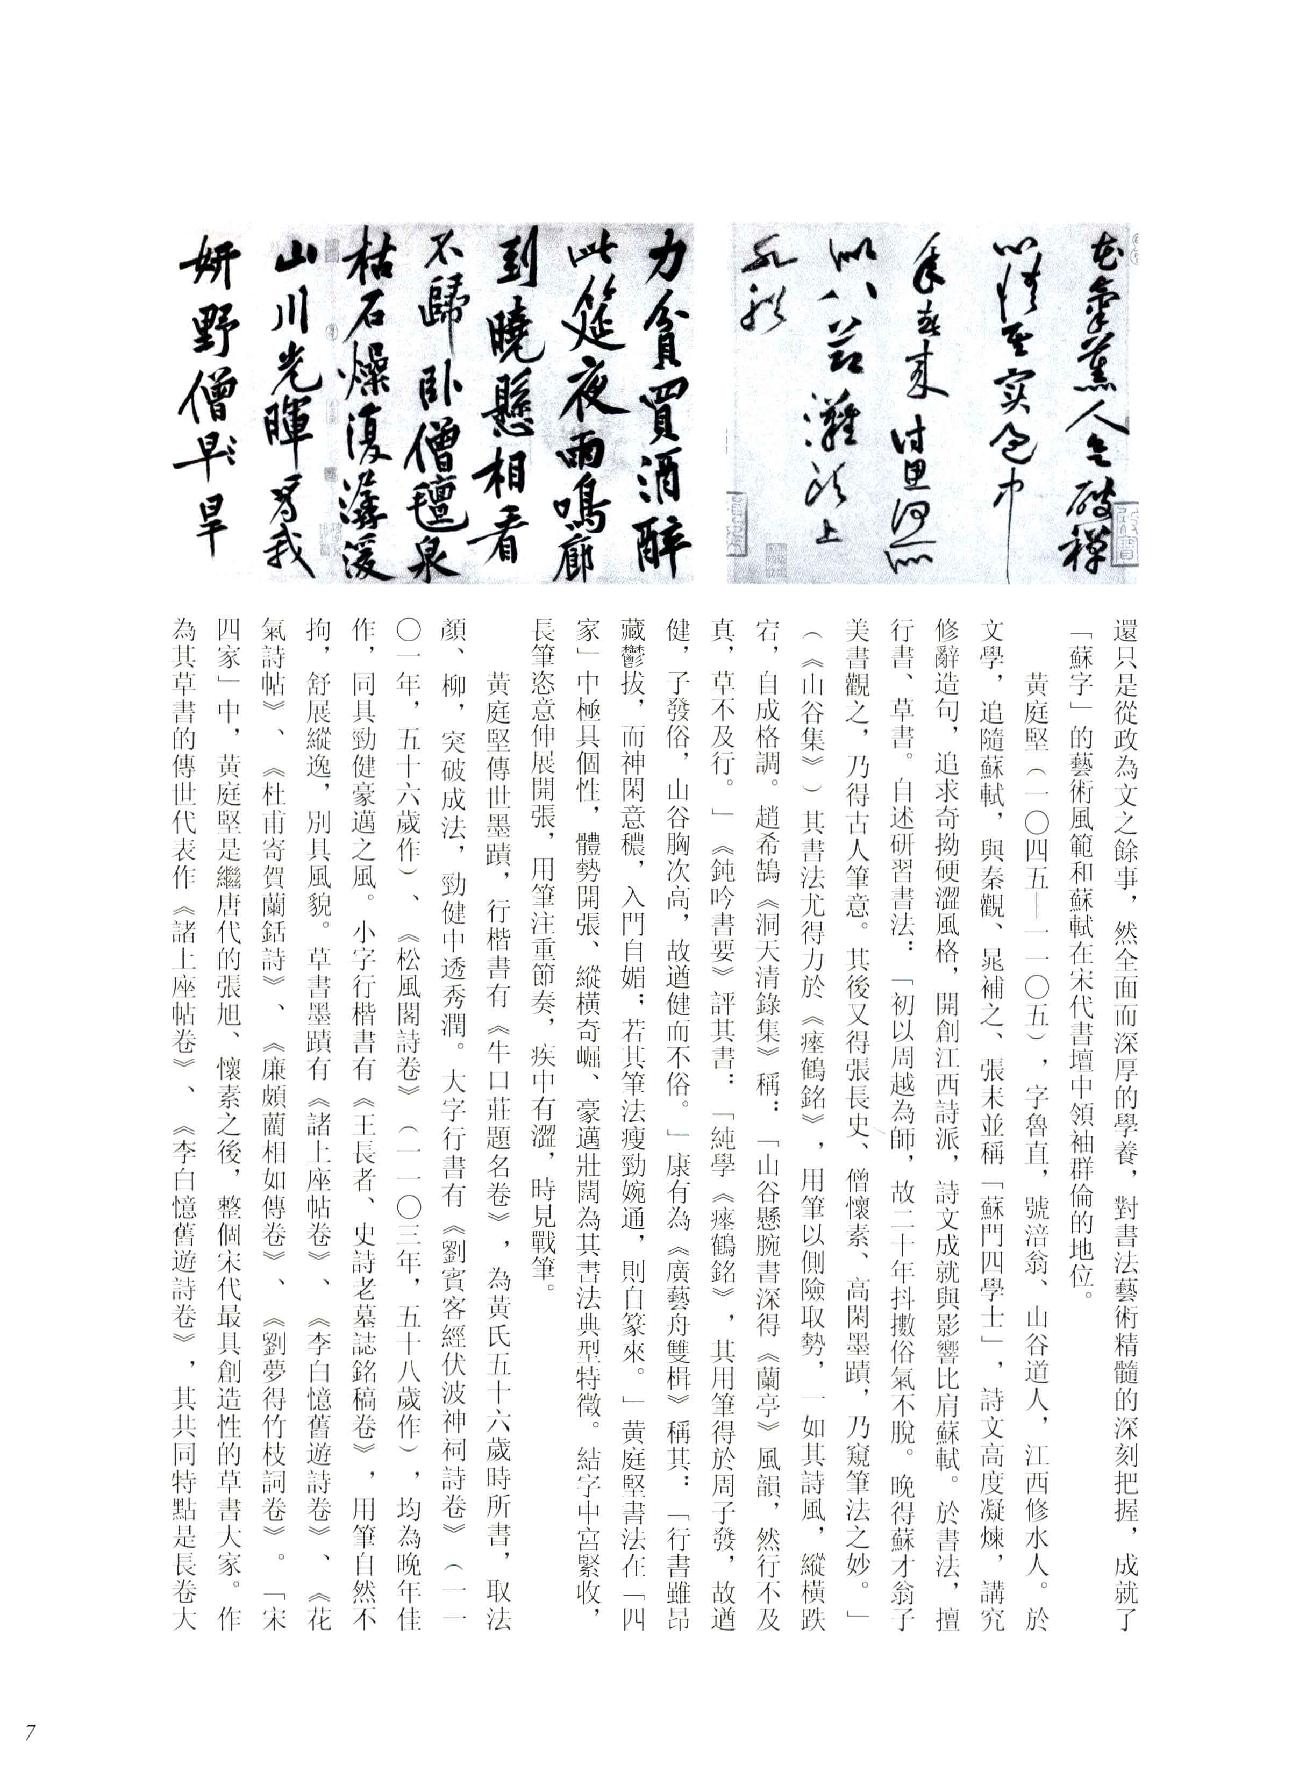 花氣薰人欲破禪
心情其實過中
年春來詩思何所
似八節灘頭上
水船
力貧買酒醉
此筵夜雨鳴廊
到曉懸相看
不歸臥僧氈泉
枯石燥復潺湲
山川光暉為我
妍野僧早旱
還只是從政為文之餘事，然全面而深厚的學養，對書法藝術精髓的深刻把握，成就了
「蘇字」的藝術風範和蘇軾在宋代書壇中領袖群倫的地位。
黃庭堅（一〇四五—一一〇五），字魯直，號涪翁、山谷道人，江西修水人。於
文學，追隨蘇軾，與秦觀、晁補之、張耒並稱「蘇門四學士」，詩文高度凝煉，講究
修辭造句，追求奇拗硬澀風格，開創江西詩派，詩文成就與影響比肩蘇軾。於書法，擅
行書、草書。自述研習書法：「初以周越為師，故二十年抖擻俗氣不脫。晚得蘇才翁子
美書觀之，乃得古人筆意。其後又得張長史、僧懷素、高閑墨蹟，乃窺筆法之妙。」
（《山谷集》）其書法尤得力於《瘞鶴銘》，用筆以側險取勢，一如其詩風，縱橫跌
宕，自成格調。趙希鵠《洞天清錄集》稱：「山谷懸腕書深得《蘭亭》風韻，然行不及
真，草不及行。」《鈍吟書要》評其書：「純學《瘞鶴銘》，其用筆得於周子發，故遒
健，子發俗，山谷胸次高，故遒健而不俗。」康有為《廣藝舟雙楫》稱其：「行書雖昂
藏鬱拔，而神閑意穠，入門自媚；若其筆法瘦勁婉通，則自篆來。」黃庭堅書法在「四
家」中極具個性，體勢開張、縱橫奇崛、豪邁壯闊為其書法典型特徵。結字中宮緊收，
長筆恣意伸展開張，用筆注重節奏，疾中有澀，時見戰筆。
黃庭堅傳世墨蹟，行楷書有《牛口莊題名卷》，為黃氏五十六歲時所書，取法
顏、柳，突破成法，勁健中透秀潤。大字行書有《劉賓客經伏波神祠詩卷》（一一
〇一年，五十六歲作）、《松風閣詩卷》（一一〇三年，五十八歲作），均為晚年佳
作，同具勁健豪邁之風。小字行楷書有《王長者、史詩老墓誌銘稿卷》，用筆自然不
拘，舒展縱逸，別具風貌。草書墨蹟有《諸上座帖卷》、《李白憶舊遊詩卷》、《花
氣詩帖》、《杜甫寄賀蘭銛詩》、《廉頗藺相如傳卷》、《劉夢得竹枝詞卷》。「宋
四家」中，黃庭堅是繼唐代的張旭、懷素之後，整個宋代最具創造性的草書大家。作
為其草書的傳世代表作《諸上座帖卷》、《李白憶舊遊詩卷》，其共同特點是長卷大
7